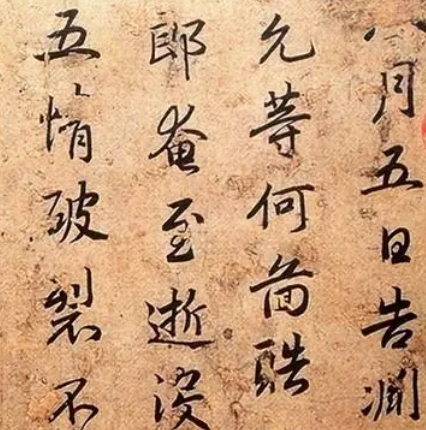 八月五日告渊
允等何啚酷
郎奄至逝没
五情破裂不